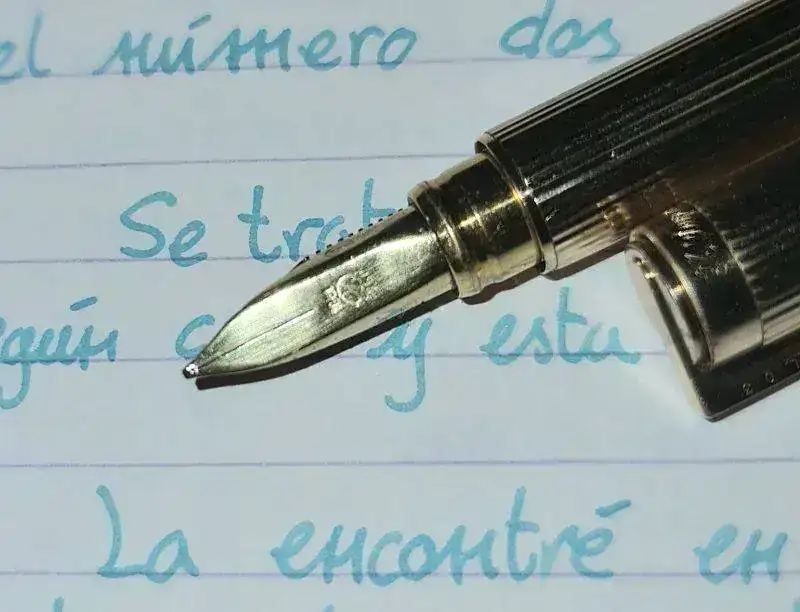 el número dos
Se trat
y esta
La encontré en